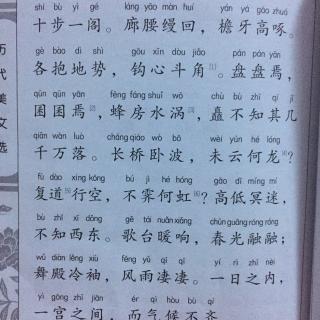 shí bù yì gé láng yāo màn huí yán yá gāo zhuó
十步一阁。廊腰缦回，檐牙高啄。
gè bào dì shì gōu xīn dòu jiǎo pán pán yān
各抱地势，钩心斗角[1]。盘盘焉，
qūn qūn yān fēng fáng shuǐ wō chù bù zhī qí jǐ
囷囷焉[2]，蜂房水涡[3]，矗不知其几
qiān wàn luò cháng qiáo wò bō wèi yún hé lóng
千万落。长桥卧波，未云何龙[4]？
fù dào xíng kōng bú jì hé hóng gāo dī míng mí
复道[5]行空，不霁何虹[6]？高低冥迷，
bù zhī xī dōng gē tái nuǎn xiǎng chūn guāng róng róng
不知西东。歌台暖响，春光融融；
wǔ diàn lěng xiù fēng yǔ qī qī yí rì zhī nèi
舞殿冷袖，风雨凄凄。一日之内，
yì gōng zhī jiān ér qì hòu bù qí
一宫之间，而气候不齐
历代美文选